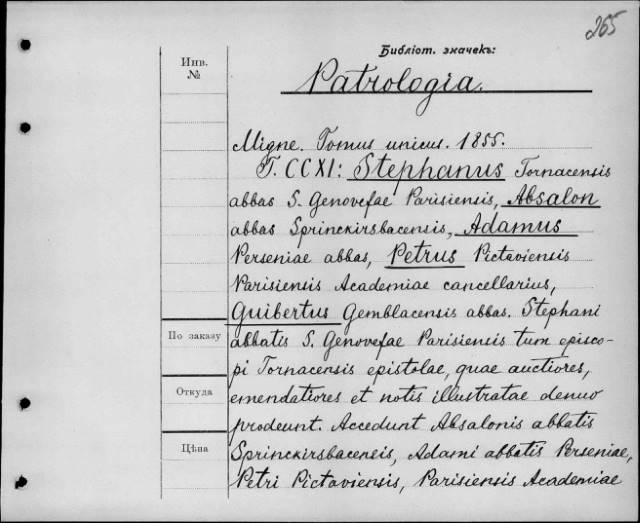 265
Библіот. значекъ:
Инв.
№
Patrologia.
Migne. Tomus unicus. 1855.
T. CCXI: Stephanus Tornacensis
abbas S. Genovefae Parisiensis, Absalon
abbas Sprinckirsbacensis, Adamus
Perseniae abbas, Petrus Pictaviensis
Parisiensis Academiae cancellarius,
Guibertus Gemblacensis abbas. Stephani
По заказу
abbatis S. Genovefae Parisiensis tum episco-
pi Tornacensis epistolae, quae auctiores,
Откуда
emendatiores et notis illustratae denuo
prodeunt. Accedunt Absalonis abbatis
Цѣна
Sprinckirsbacensis, Adami abbatis Perseniae,
Petri Pictaviensis, Parisiensis Academiae